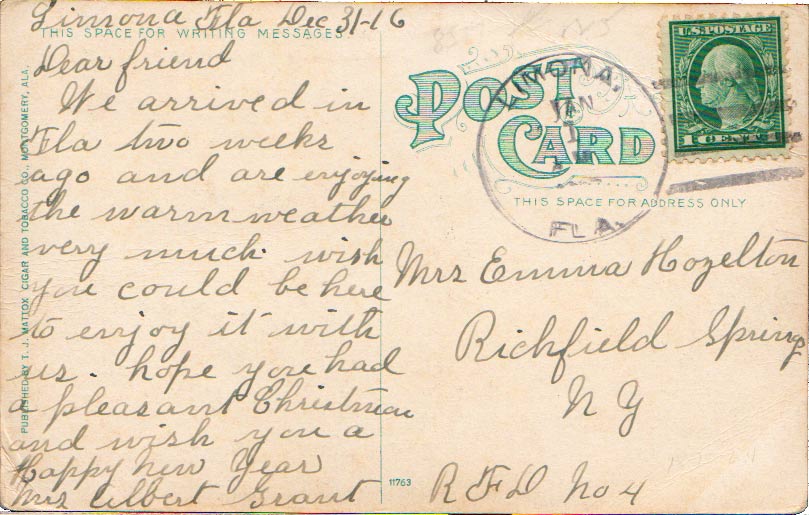 Limona Fla Dec 31-16
THIS SPACE FOR WRITING MESSAGES.
Dear friend
We arrived in
Fla two weeks
ago and are enjoying
the warm weather
very much. wish
you could be here
to enjoy it with
us. hope you had
a pleasant Christmas
and wish you a
Happy New Year
Mrs Albert Grant
PUBLISHED BY T. J. MATTOX CIGAR AND TOBACCO CO., MONTGOMERY, ALA.
POST CARD
LIMONA,
JAN
1
FLA.
U.S. POSTAGE
1 CENT 1
THIS SPACE FOR ADDRESS ONLY
Mrs Emma Hozelton
Richfield Springs
N Y
R F D No 4
11763